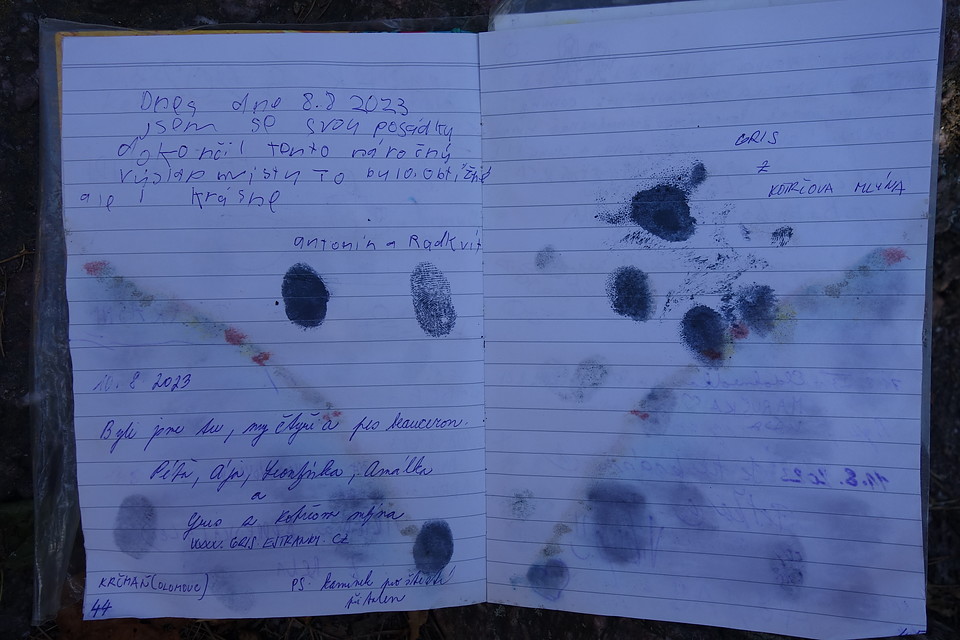 Dnes dne 8.8 2023
jsem se svou posádky
dokončil tento náročný
výšlap místy to bylo.obtížné
ale i krásné
antonín a Radkvít
10. 8 2023
Byli jsme tu, my čtyři a pes beauceron.
Péťa, Ája, Leontýnka, Amálka
a
Gris z Kotrčova mlýna
www.GRIS.ESTRANKY.CZ
KRČMAŇ(OLOMOUC)
PS. kamínek pro štěstí
44
GRIS
Z
KOTRČOVA MLÝNA
11.8.